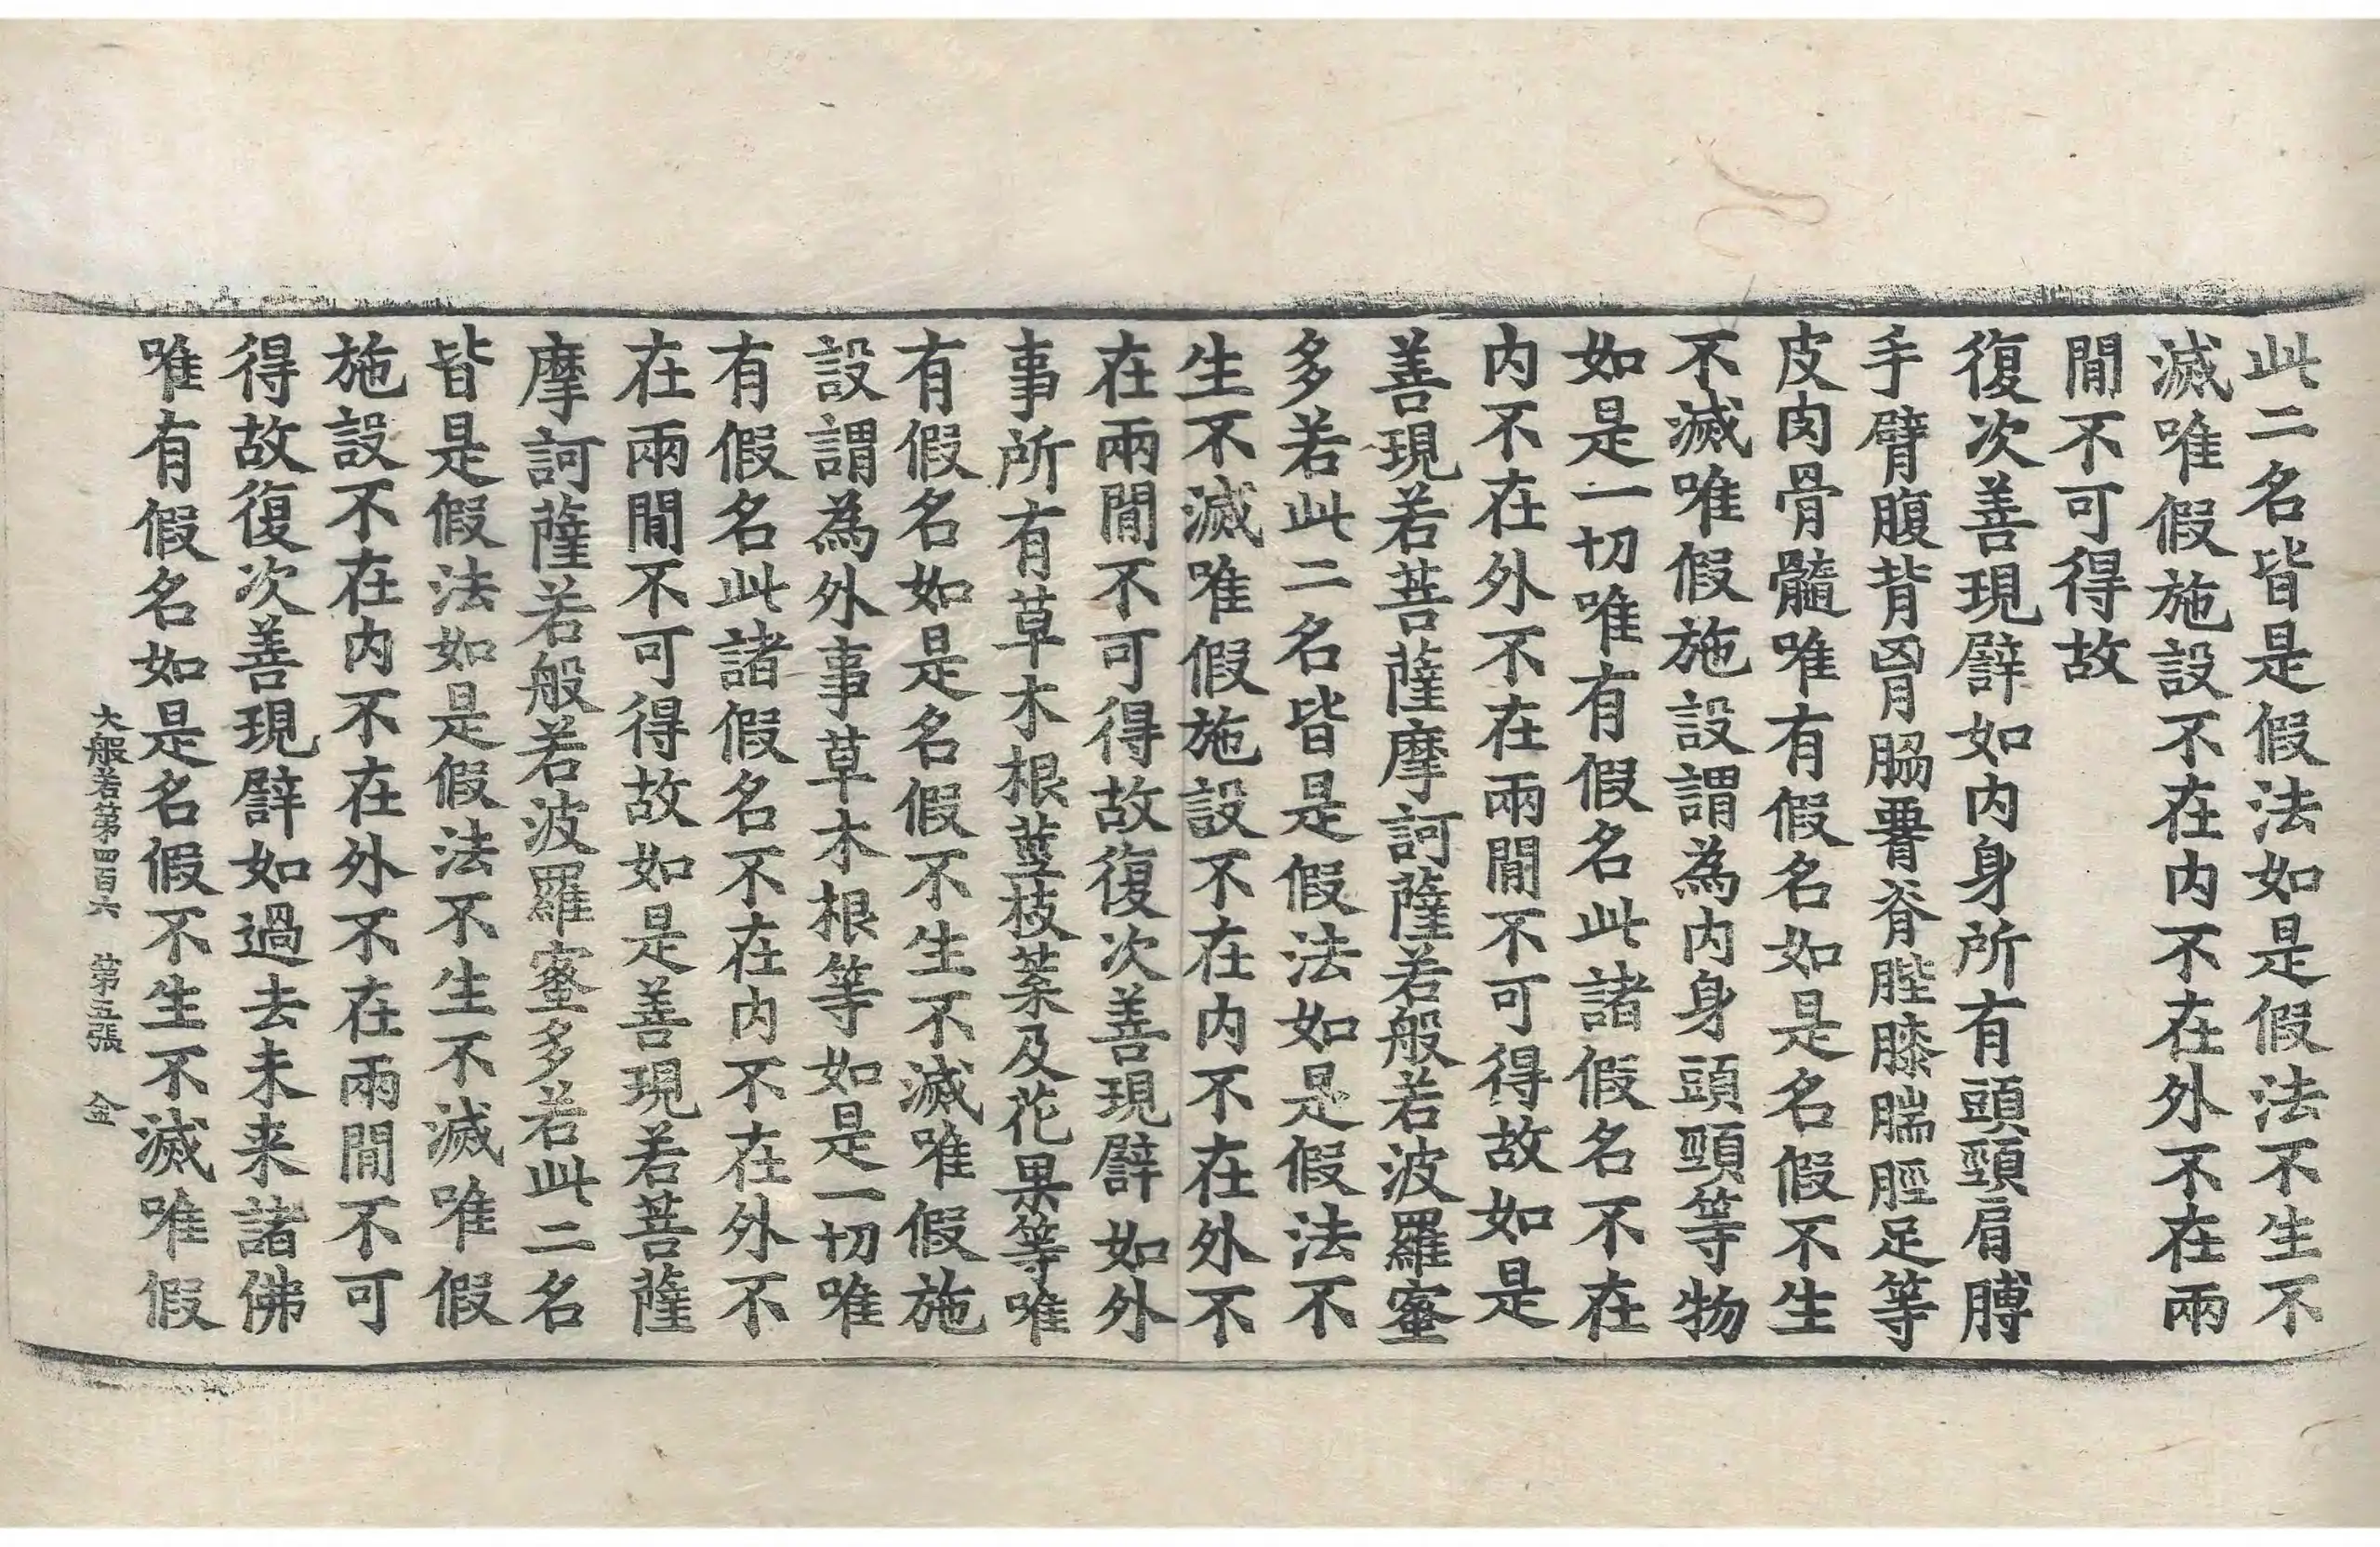 此二名皆是假法如是假法不生不
滅唯假施設不在内不在外不在兩
閒不可得故
復次善現譬如内身所有頭頸肩膊
手臂腹背胷脇䏚脊䏶膝腨脛足等
皮肉骨髓唯有假名如是名假不生
不滅唯假施設謂為内身頭頸等物
如是一切唯有假名此諸假名不在
内不在外不在兩閒不可得故如是
善現若菩薩摩訶薩若般若波羅蜜
多若此二名皆是假法如是假法不
生不滅唯假施設不在内不在外不
在兩閒不可得故復次善現譬如外
事所有草木根莖枝葉及花果等唯
有假名如是名假不生不滅唯假施
設謂為外事草木根等如是一切唯
有假名此諸假名不在内不在外不
在兩閒不可得故如是善現若菩薩
摩訶薩若般若波羅蜜多若此二名
皆是假法如是假法不生不滅唯假
施設不在内不在外不在兩閒不可
得故復次善現譬如過去未来諸佛
唯有假名如是名假不生不滅唯假
大般若第四百六 第五張 金